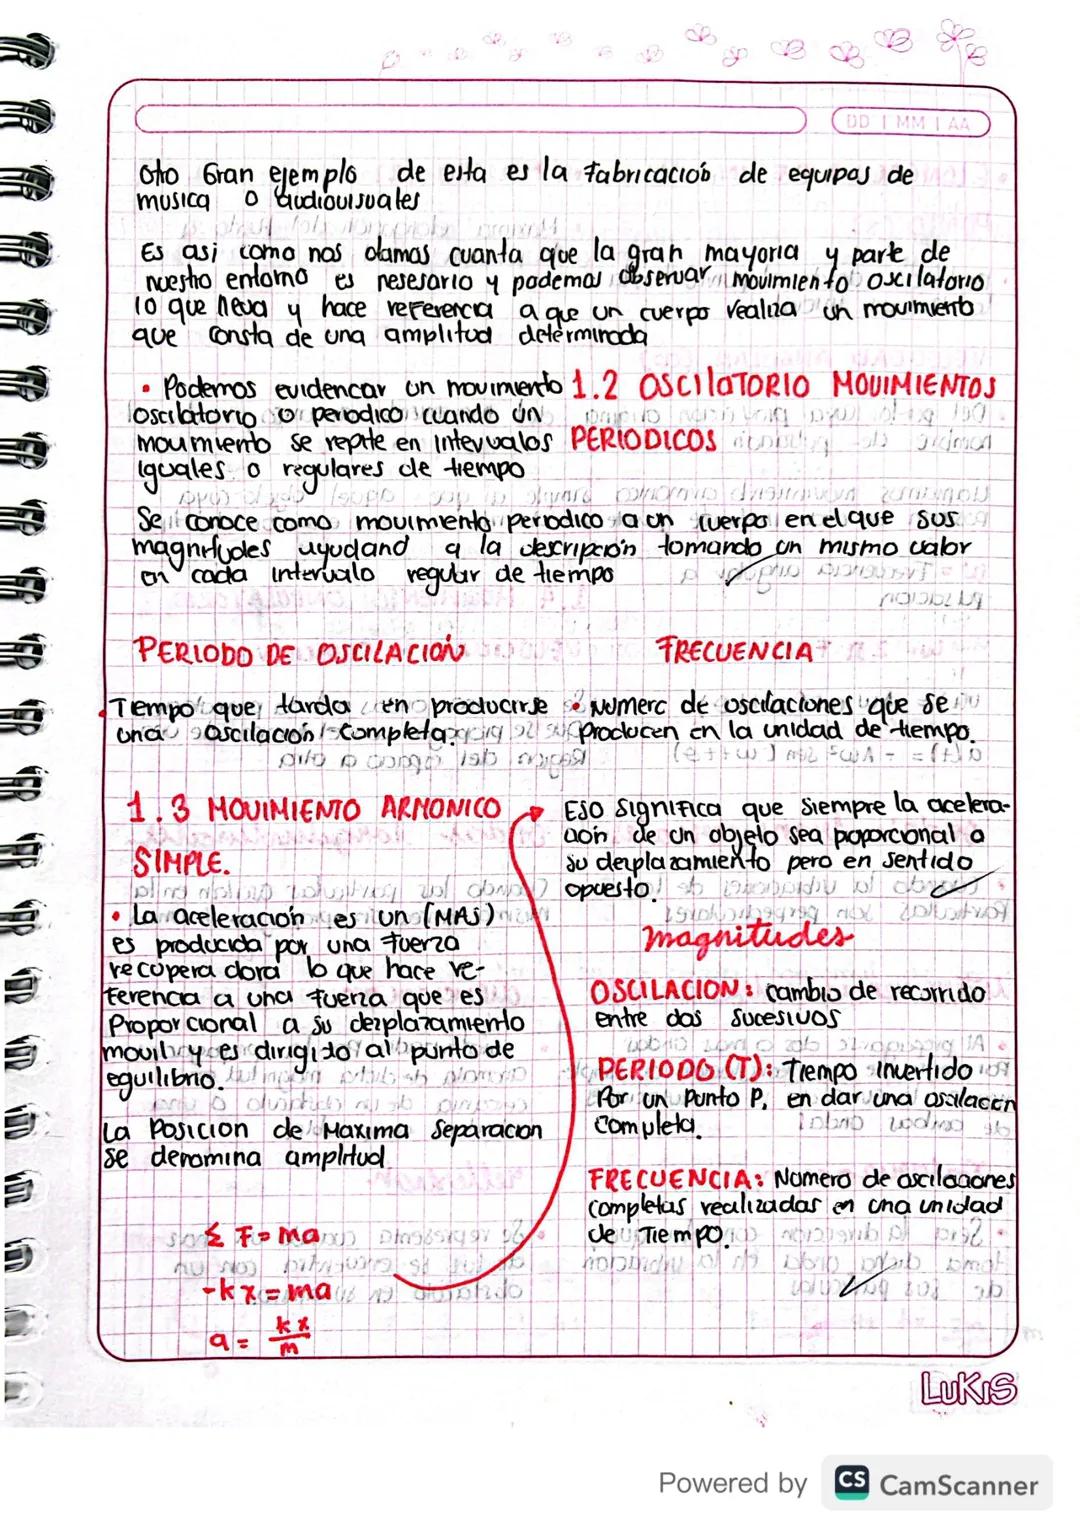 DD | MM | AA
otro Gran ejemplo de esta es la Fabricación de equipos de
musica o audiovisuales
Es asi como nos damos cuanta que la gran mayoria y parte de
nuestro entorno es nesesario y podemos observar movimiento oscilatorio
lo que lleva y hace referencia a que un cuerpo realiza un movimiento
que consta de una amplitud determinada
• Podemos evidencar un movimiento
oscilatorio o periodico cuando un
movimiento se repite en intervalos
iguales o regulares de tiempo
1.2 OSCILATORIO MOVIMIENTOS
PERIODICOS
Se conoce como movimiento periodico a un cuerpo en el que sus
magnitudes ayudand a la descripción tomando un mismo valor
en cada intervalo regular de tiempo
PERIODO DE OSCILACIÓN
Tiempo que tarda en producirse
una oscilación completa.
FRECUENCIA
• Numero de oscilaciones que se
producen en la unidad de tiempo.
1.3 MOVIMIENTO ARMONICO
SIMPLE.
• La aceleración es un (MAS)
es producida por una fuerza
recupera dora lo que hace re-
ferencia a una fuerza que es
Proporcional a su dezplazamiento
movil y es dirigido al punto de
equilibrio.
La Posicion de Maxima Separacion
se denomina amplitud
Σ F = ma
-kx = ma
a = kx/m
Eso significa que siempre la acelera-
ción de un objeto sea poporcional a
su desplazamiento pero en sentido
opuesto.
magnitudes
OSCILACION: cambio de recorrido
entre dos sucesivos
PERIODO (T): Tiempo invertido
Por un Punto P, en dar una oscilacion
completa.
FRECUENCIA: Numero de oscilaciones
completas realizadas en una unidad
de Tiempo.
LUKIS
Powered by CS CamScanner